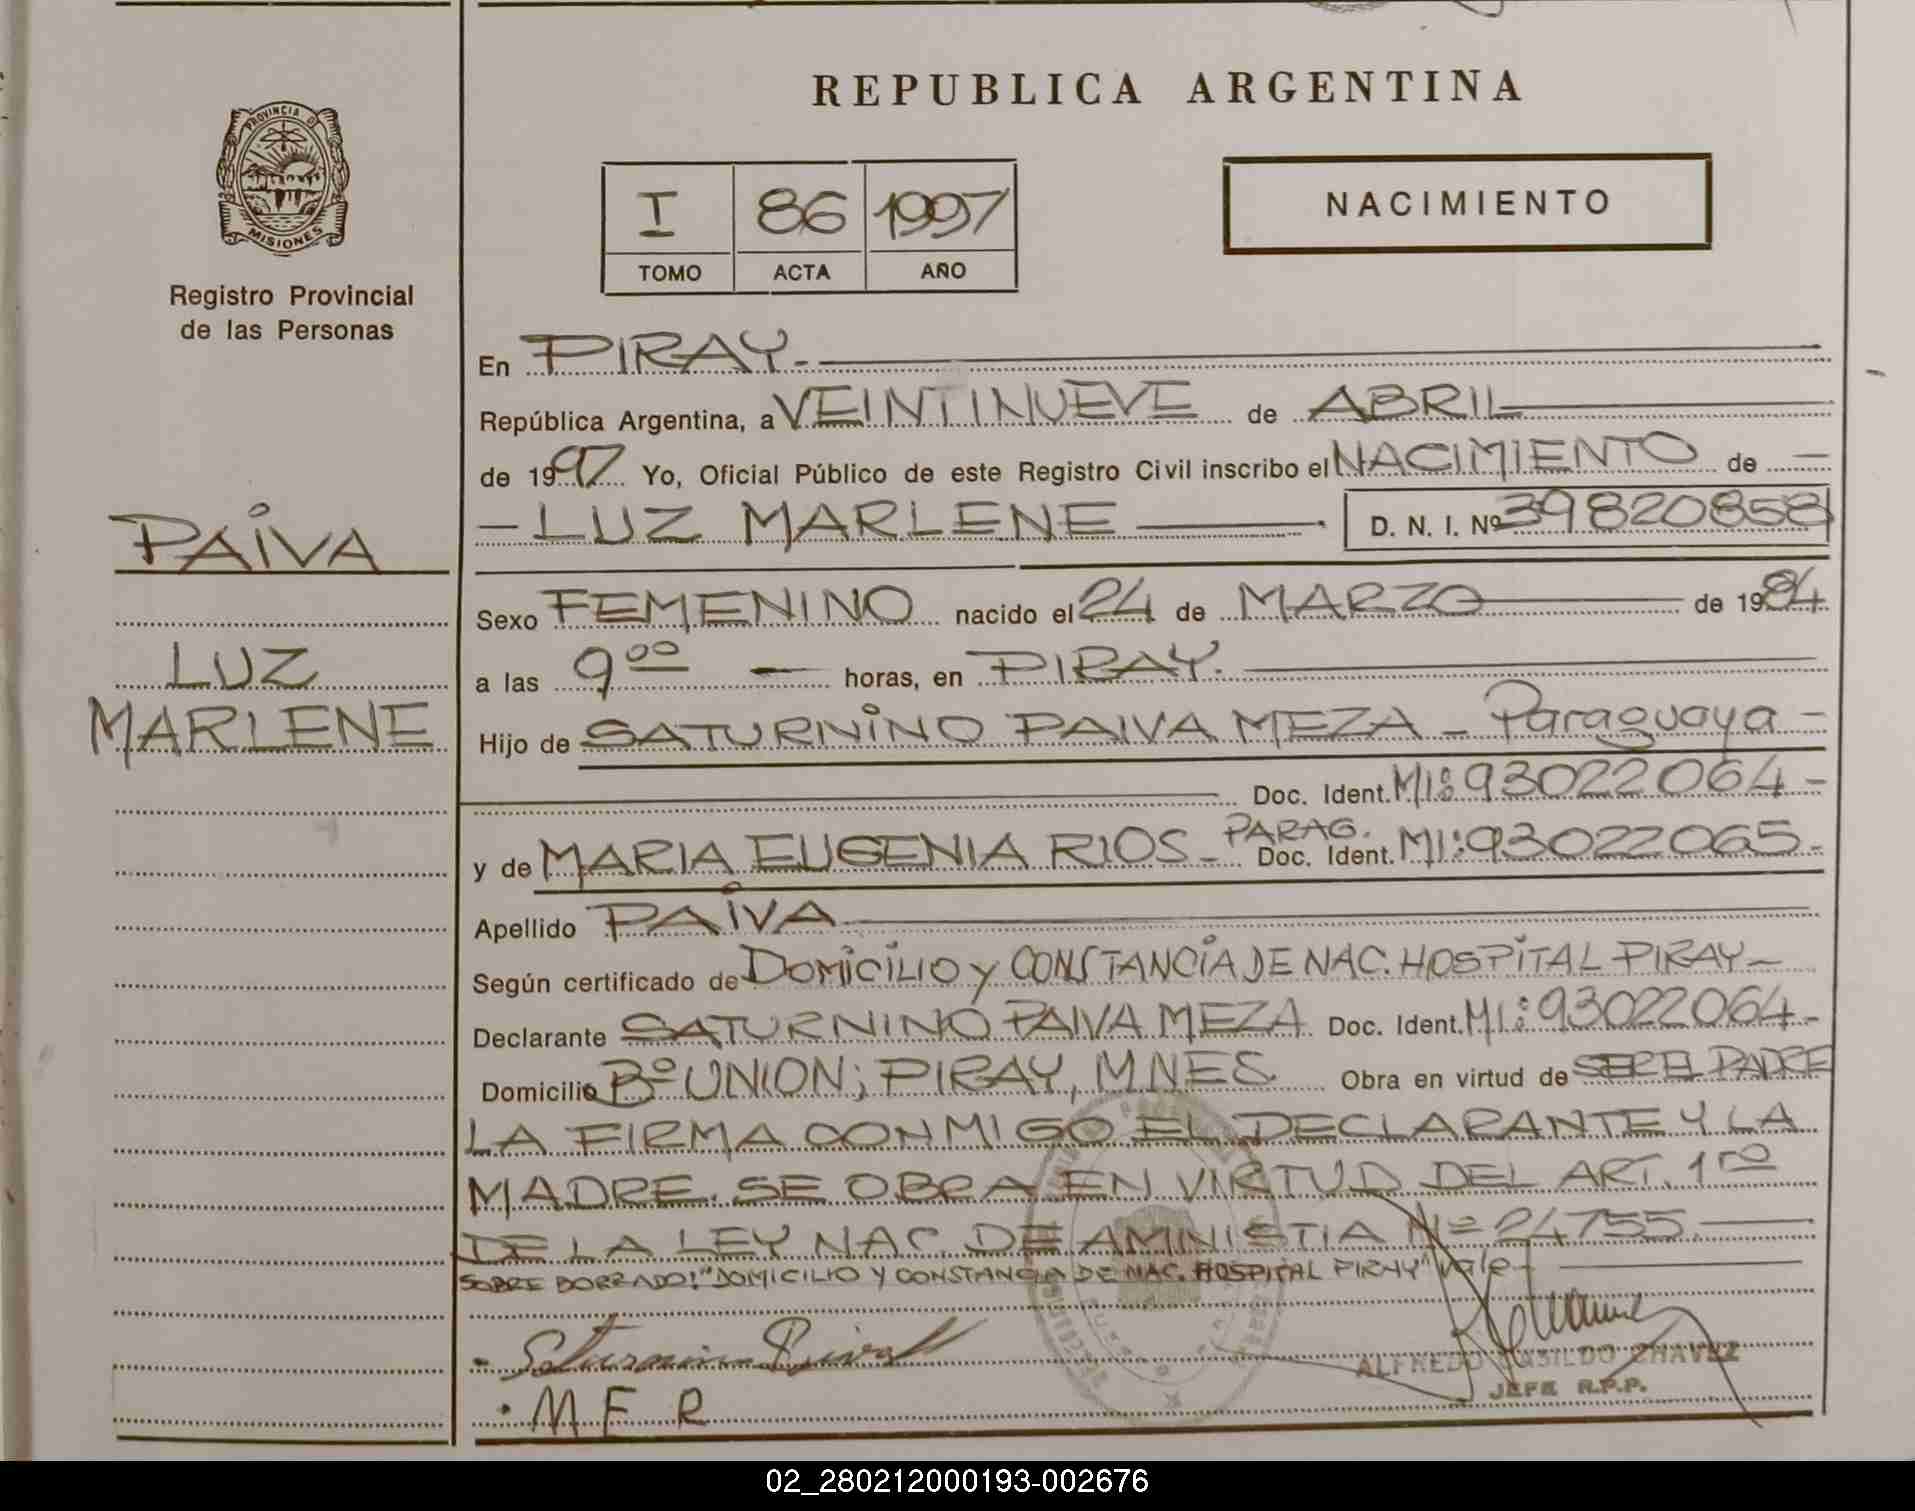 REPUBLICA ARGENTINA
PROVINCIA D
MISIONES
Registro Provincial
de las Personas
I 86 1997
TOMO ACTA AÑO
NACIMIENTO
PAIVA
LUZ
MARLENE
En PIRAY.
República Argentina, a VEINTINUEVE de ABRIL
de 1997 Yo, Oficial Público de este Registro Civil inscribo el NACIMIENTO de
LUZ MARLENE D. N. I. Nº 39820858
Sexo FEMENINO nacido el 24 de MARZO de 1984
a las 9 00 horas, en PIRAY.
Hijo de SATURNINO PAIVA MEZA - Paraguaya -
Doc. Ident. MI: 93022064 -
y de MARIA EUGENIA RIOS - PARAG. Doc. Ident. MI: 93022065 -
Apellido PAIVA
Según certificado de DOMICILIO y CONSTANCIA DE NAC. HOSPITAL PIRAY -
Declarante SATURNINO PAIVA MEZA Doc. Ident. MI: 93022064 -
Domicilio Bº UNION; PIRAY, MNES. Obra en virtud de SER EL PADRE
LA FIRMA CONMIGO EL DECLARANTE Y LA
MADRE. SE OBRA EN VIRTUD DEL ART. 1ro
DE LA LEY NAC. DE AMNISTIA Nº 24755.
SOBRE BORRADO: "DOMICILIO Y CONSTANCIA DE NAC. HOSPITAL PIRAY" Vale -
Saturnino Paiva
ALFREDO BASILDO CHAVEZ
JEFE R.P.P.
M F R
02_280212000193-002676